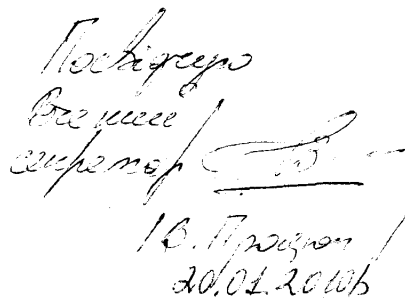 Посвідчую
Вчений
секретар
/В. Процюк/
20.01.2010р